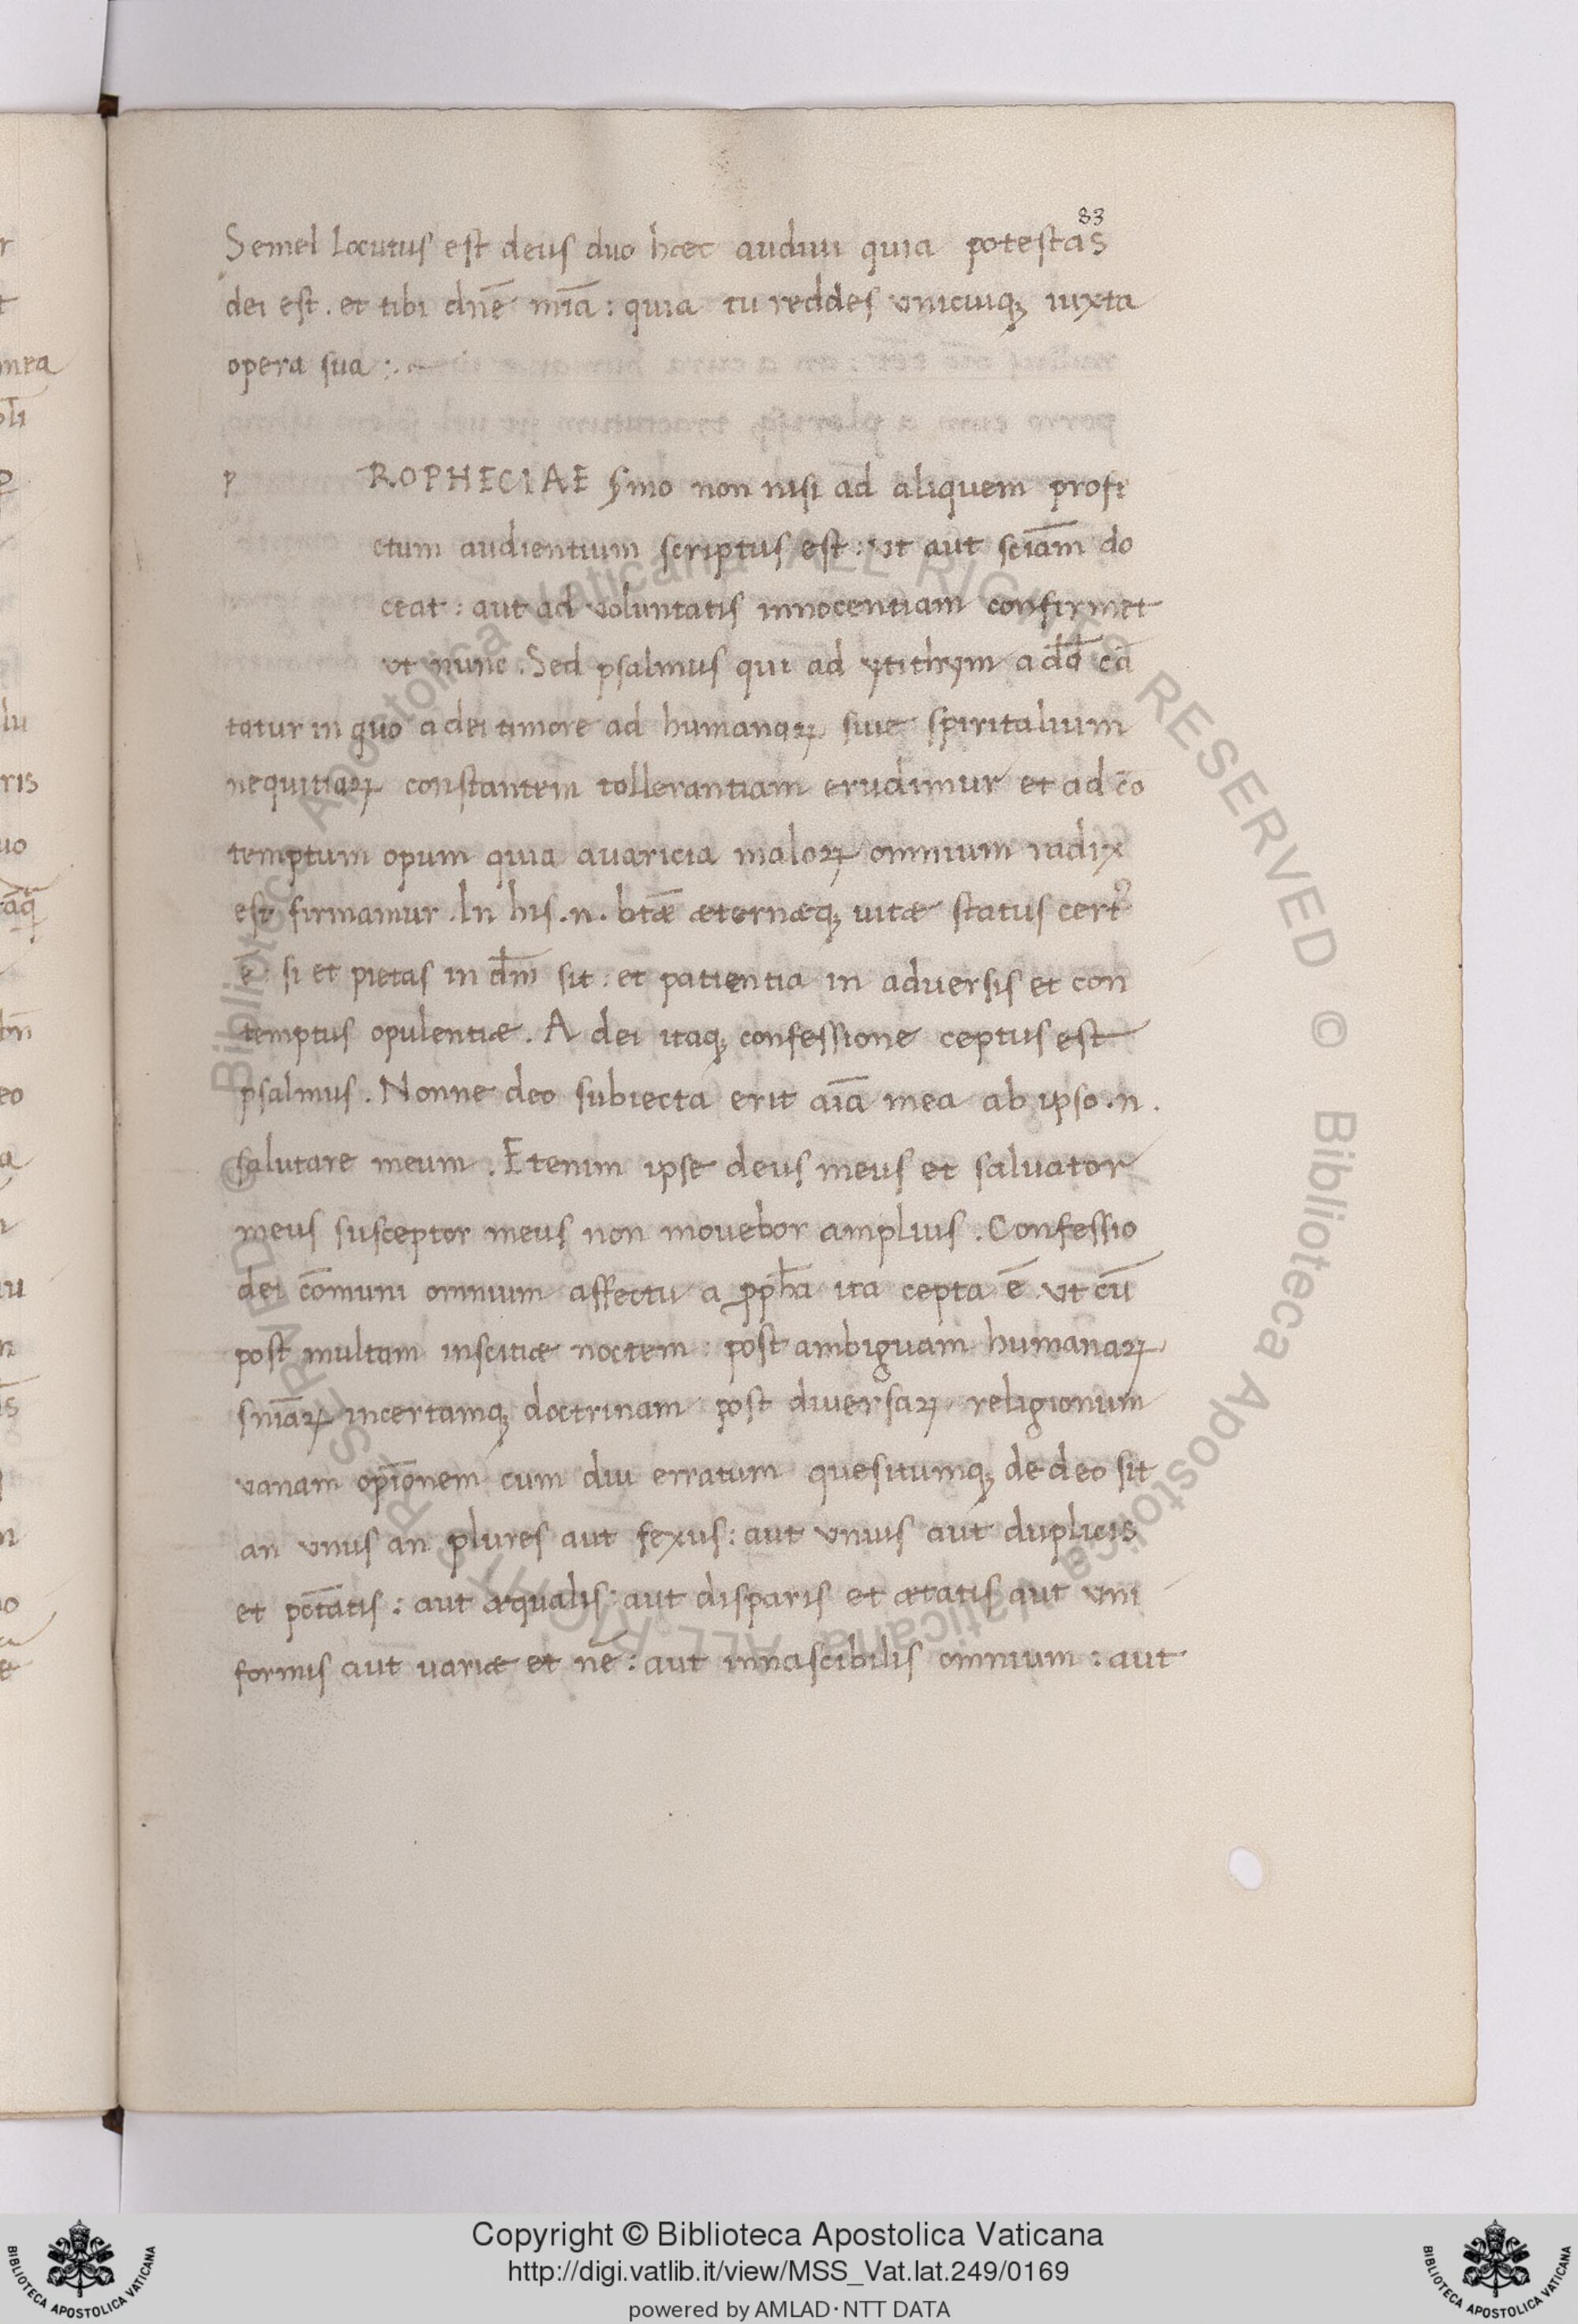 83
Semel Locutus est deus duo hæc audiui quia potestas
dei est. et tibi dn̄e mīa : quia tu reddes vnicuiqꝫ iuxta
opera sua :.
p ROPHECIAE s̄mo non nisi ad aliquem profe
ctum audientium scriptus est : vt aut sciām do
ceat : aut ad voluntatis innocentiam confirmet
vt nunc . Sed psalmus qui ad ytithym a dd̄ cā
tatur in quo a dei timore ad humanaꝝ siue spiritalium
nequitiaꝝ constantem tollerantiam erudimur et ad cō
temptum opum quia auaricia maloꝝ omnium radix
est firmamur . In his .n. btǣ æternæqꝫ uitæ status certꝰ
ē si et pietas in dm̄ sit : et patientia in aduersis et con
temptus opulentiæ . A dei itaqꝫ confessione ceptus est
psalmus . Nonne deo subiecta erit aīa mea ab ipso .n.
salutare meum . Etenim ipse deus meus et saluator
meus susceptor meus non mouebor amplius . Confessio
dei cōmuni omnium affectu a ꝓph̄a ita cepta ē vt cū
post multam inscitiæ noctem : post ambiguam humanaꝝ
sniāꝝ incertamqꝫ doctrinam post diuersaꝝ religionum
vanam opīonem cum diu erratum quesitumqꝫ de deo sit
an vnus an plures aut sexus : aut vnius aut duplicis
et potātis : aut æqualis : aut disparis et ætatis aut vni
formis aut uariæ et nē : aut innascibilis omnium : aut
Biblioteca Apostolica Vaticana ALL RIGHTS RESERVED ©
Copyright © Biblioteca Apostolica Vaticana
http://digi.vatlib.it/view/MSS_Vat.lat.249/0169
powered by AMLAD·NTT DATA
BIBLIOTECA APOSTOLICA VATICANA
BIBLIOTECA APOSTOLICA VATICANA